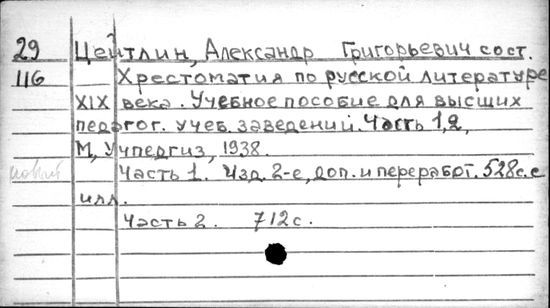 29 Цейтлин, Александр Григорьевич сост.
116 Хрестоматия по русской литературе
XIX века. Учебное пособие для высших
педагог. учеб. заведений. Часть 1,2,
М, Учпедгиз, 1938.
Часть 1. Изд. 2-е, доп. и переработ. 528с. с
илл.
Часть 2. 712с.